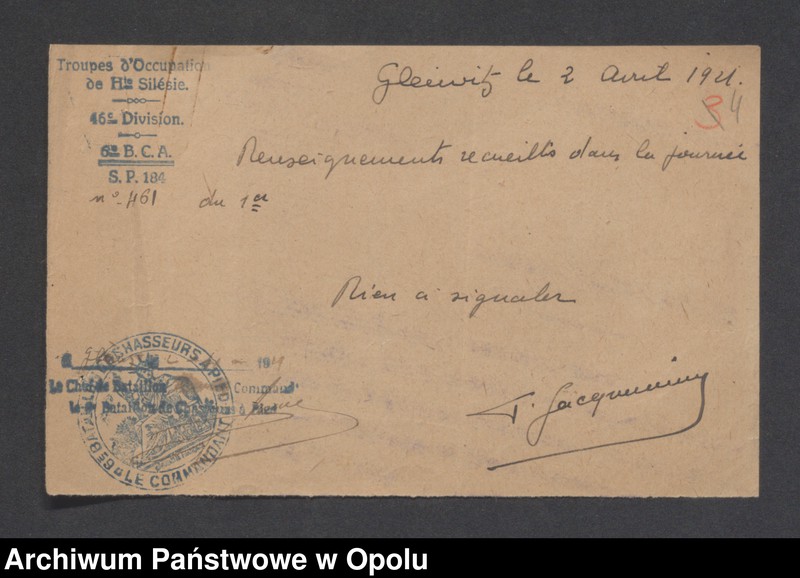 Troupes d'Occupation
de Hte Silésie.
46e Division.
6e B.C.A.
S.P. 184
n° 461
Gleiwitz le 2 Avril 1921.
34
Renseignements recueillis dans la journée
du 1er
Rien à signaler
192
Le Chef de Bataillon Commandt
le 6e Bataillon de Chasseurs à Pied
CHASSEURS A PIED
LE COMMANDANT
6e BATAILLON
Jacquemin
Archiwum Państwowe w Opolu